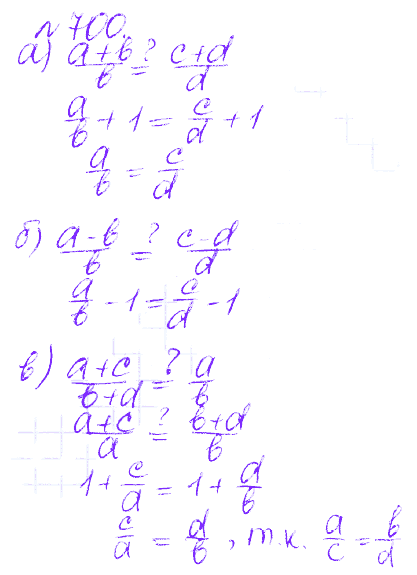 № 700.
а) (a+b)/b ?= (c+d)/d
a/b + 1 = c/d + 1
a/b = c/d
б) (a-b)/b ?= (c-d)/d
a/b - 1 = c/d - 1
в) (a+c)/(b+d) ?= a/b
(a+c)/a ?= (b+d)/b
1 + c/a = 1 + d/b
c/a = d/b, т.к. a/c = b/d